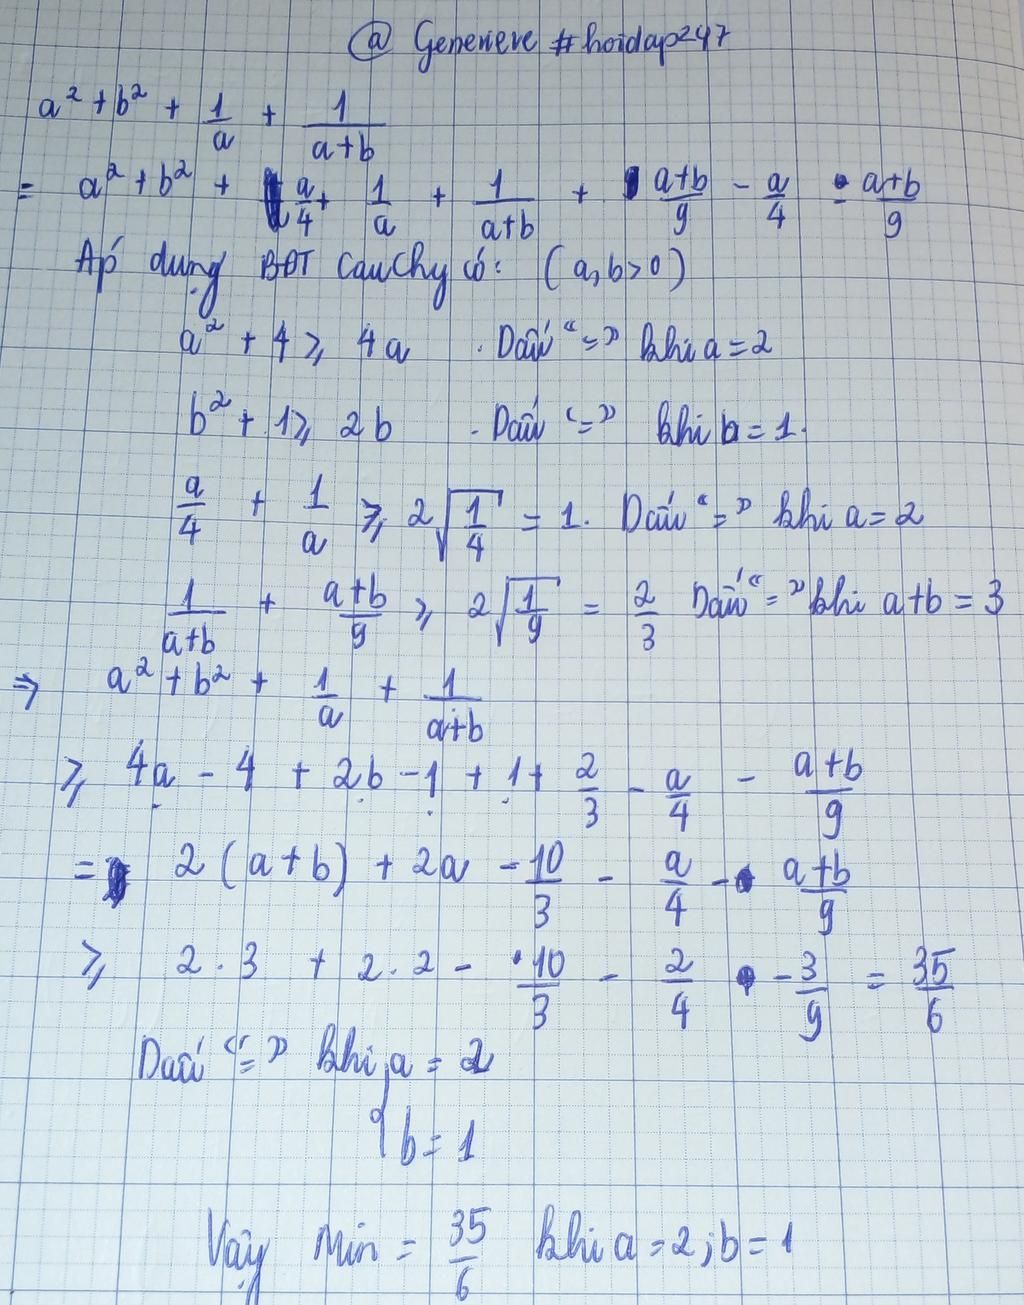 @ Genenieve #hoidap247
a² + b² + 1/a + 1/(a+b)
= a² + b² + a/4 + 1/a + 1/(a+b) + (a+b)/9 - a/4 - (a+b)/9
Áp dụng BĐT Cauchy có: (a,b>0)
a² + 4 ≥ 4a . Dấu "=" khi a = 2
b² + 1 ≥ 2b . Dấu "=" khi b = 1.
a/4 + 1/a ≥ 2√(1/4) = 1. Dấu "=" khi a = 2
1/(a+b) + (a+b)/9 ≥ 2√(1/9) = 2/3 Dấu "=" khi a+b = 3
⇒ a² + b² + 1/a + 1/(a+b)
≥ 4a - 4 + 2b - 1 + 1 + 2/3 - a/4 - (a+b)/9
= 2(a+b) + 2a - 10/3 - a/4 - (a+b)/9
≥ 2.3 + 2.2 - 10/3 - 2/4 - 3/9 = 35/6
Dấu "=" khi { a = 2
b = 1
Vậy Min = 35/6 khi a = 2; b = 1